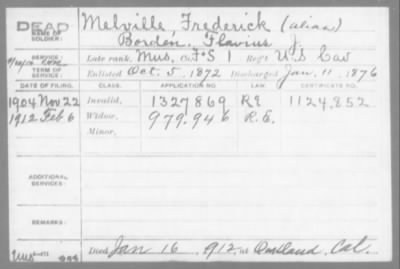 DEAD
NAME OF SOLDIER:
Melville, Frederick (alias)
Borden, Flavius J.
SERVICE:
Late rank, Mus, Co. F&S 1 Reg't U.S Cav
TERM OF SERVICE:
Enlisted Oct. 5, 1872 Discharged Jan. 11, 1876
DATE OF FILING. CLASS. APPLICATION NO. LAW CERTIFICATE NO.
1904 Nov 22 Invalid, 1327869 1124,852
1912 Feb 6 Widow, 979.946 R.E.
Minor,
ADDITIONAL SERVICES:
REMARKS:
Died Jan 16, 1912, at Oakland, Cal.